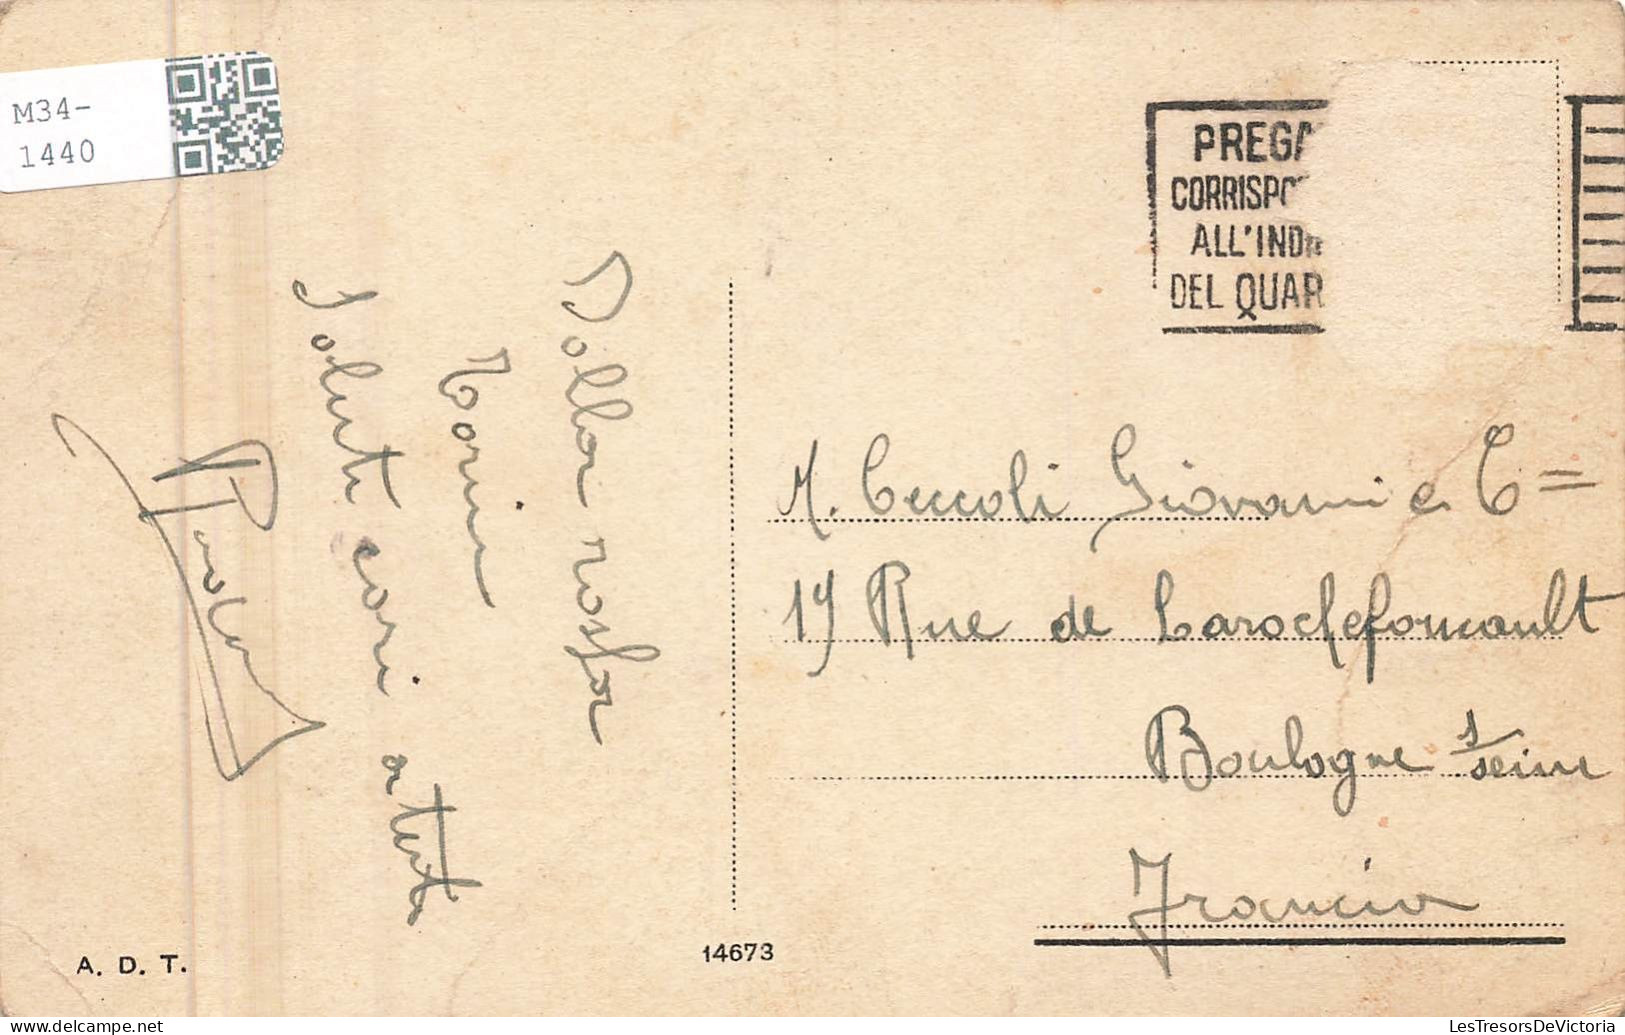 M34-
1440
PREGA
CORRISPO
ALL'INDI
DEL QUAR
Dalla nostra
Torino
Saluti cari a tutti
Paola
M. Ceccoli Giovanni e C=
19 Rue de Larochefoucault
Boulogne s/seine
Francia
A. D. T.
14673
LesTresorsDeVictoria.com
LesTresorsDeVictoria